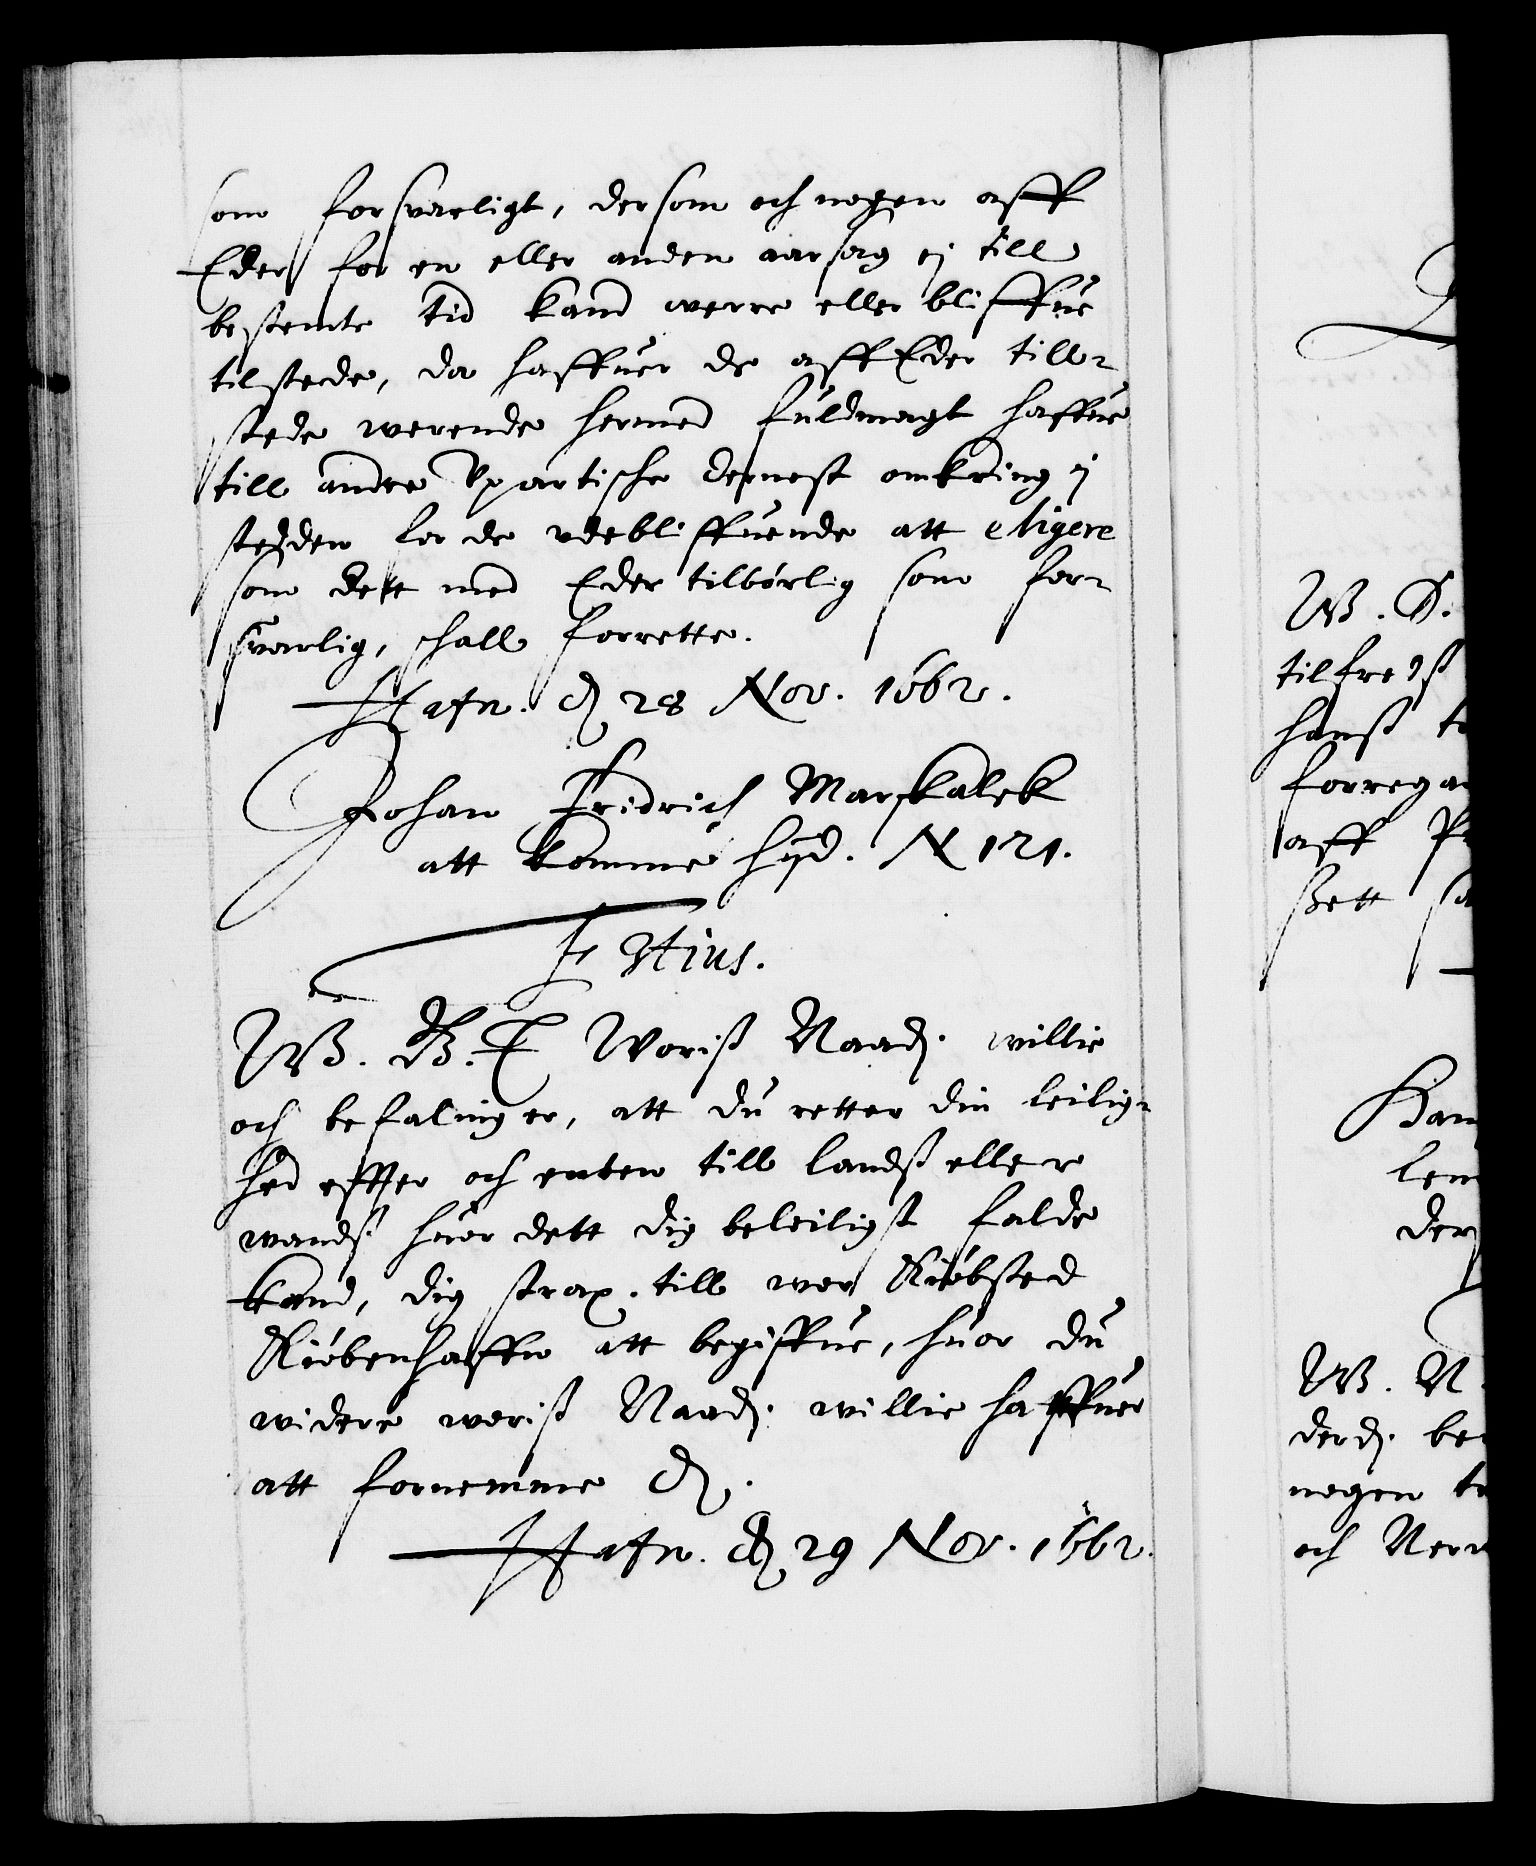 som forsvarligt, dersom och nogen aff
Eder for en eller anden aarsag ej till
bestemte tid kand werre eller bliffue
tilstede, da haffuer de aff Eder till-
stede werende hermed fuldmagt haffue
till andre Vpartische dernest omkring i
steden for de vdebliffuende att eligere
som dett med Eder tilbørlig som for-
svarlig, schall forrette.
Hafn. d 28 Nov. 1662.
Johan Fridrich Marskalck
att komme hid. N 121.
Fr 3tius.
W. G. T Woriß Naad. willie
och befaling er, att du retter din leilig-
hed effter och enten till landß eller
wandß huor dett dig beleiligst falde
kand, dig strax till wor Kiøbsted
Kiøbenhaffn att begiffue, huor du
widere woriß Naad. willie haffuer
att fornemme d.
Hafn. d 29 Nov. 1662.
W. G.
tilfredß
hanß
forrega
aff
ßett
Ham
len
der
W. N.
derd. be
nogen
och Nerw